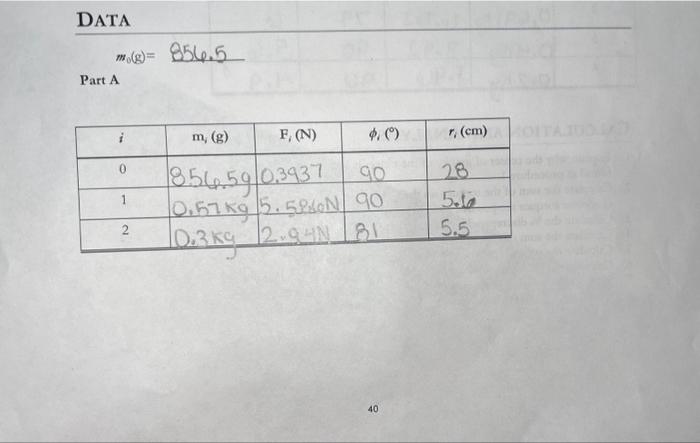 DATA
m₀(g)= 856.5
Part A
i mᵢ (g) Fᵢ (N) ϕᵢ (°) rᵢ (cm)
0 856.5g 0.3937 90 28
1 0.57kg 5.586N 90 5.6
2 0.3kg 2.94N 81 5.5
40